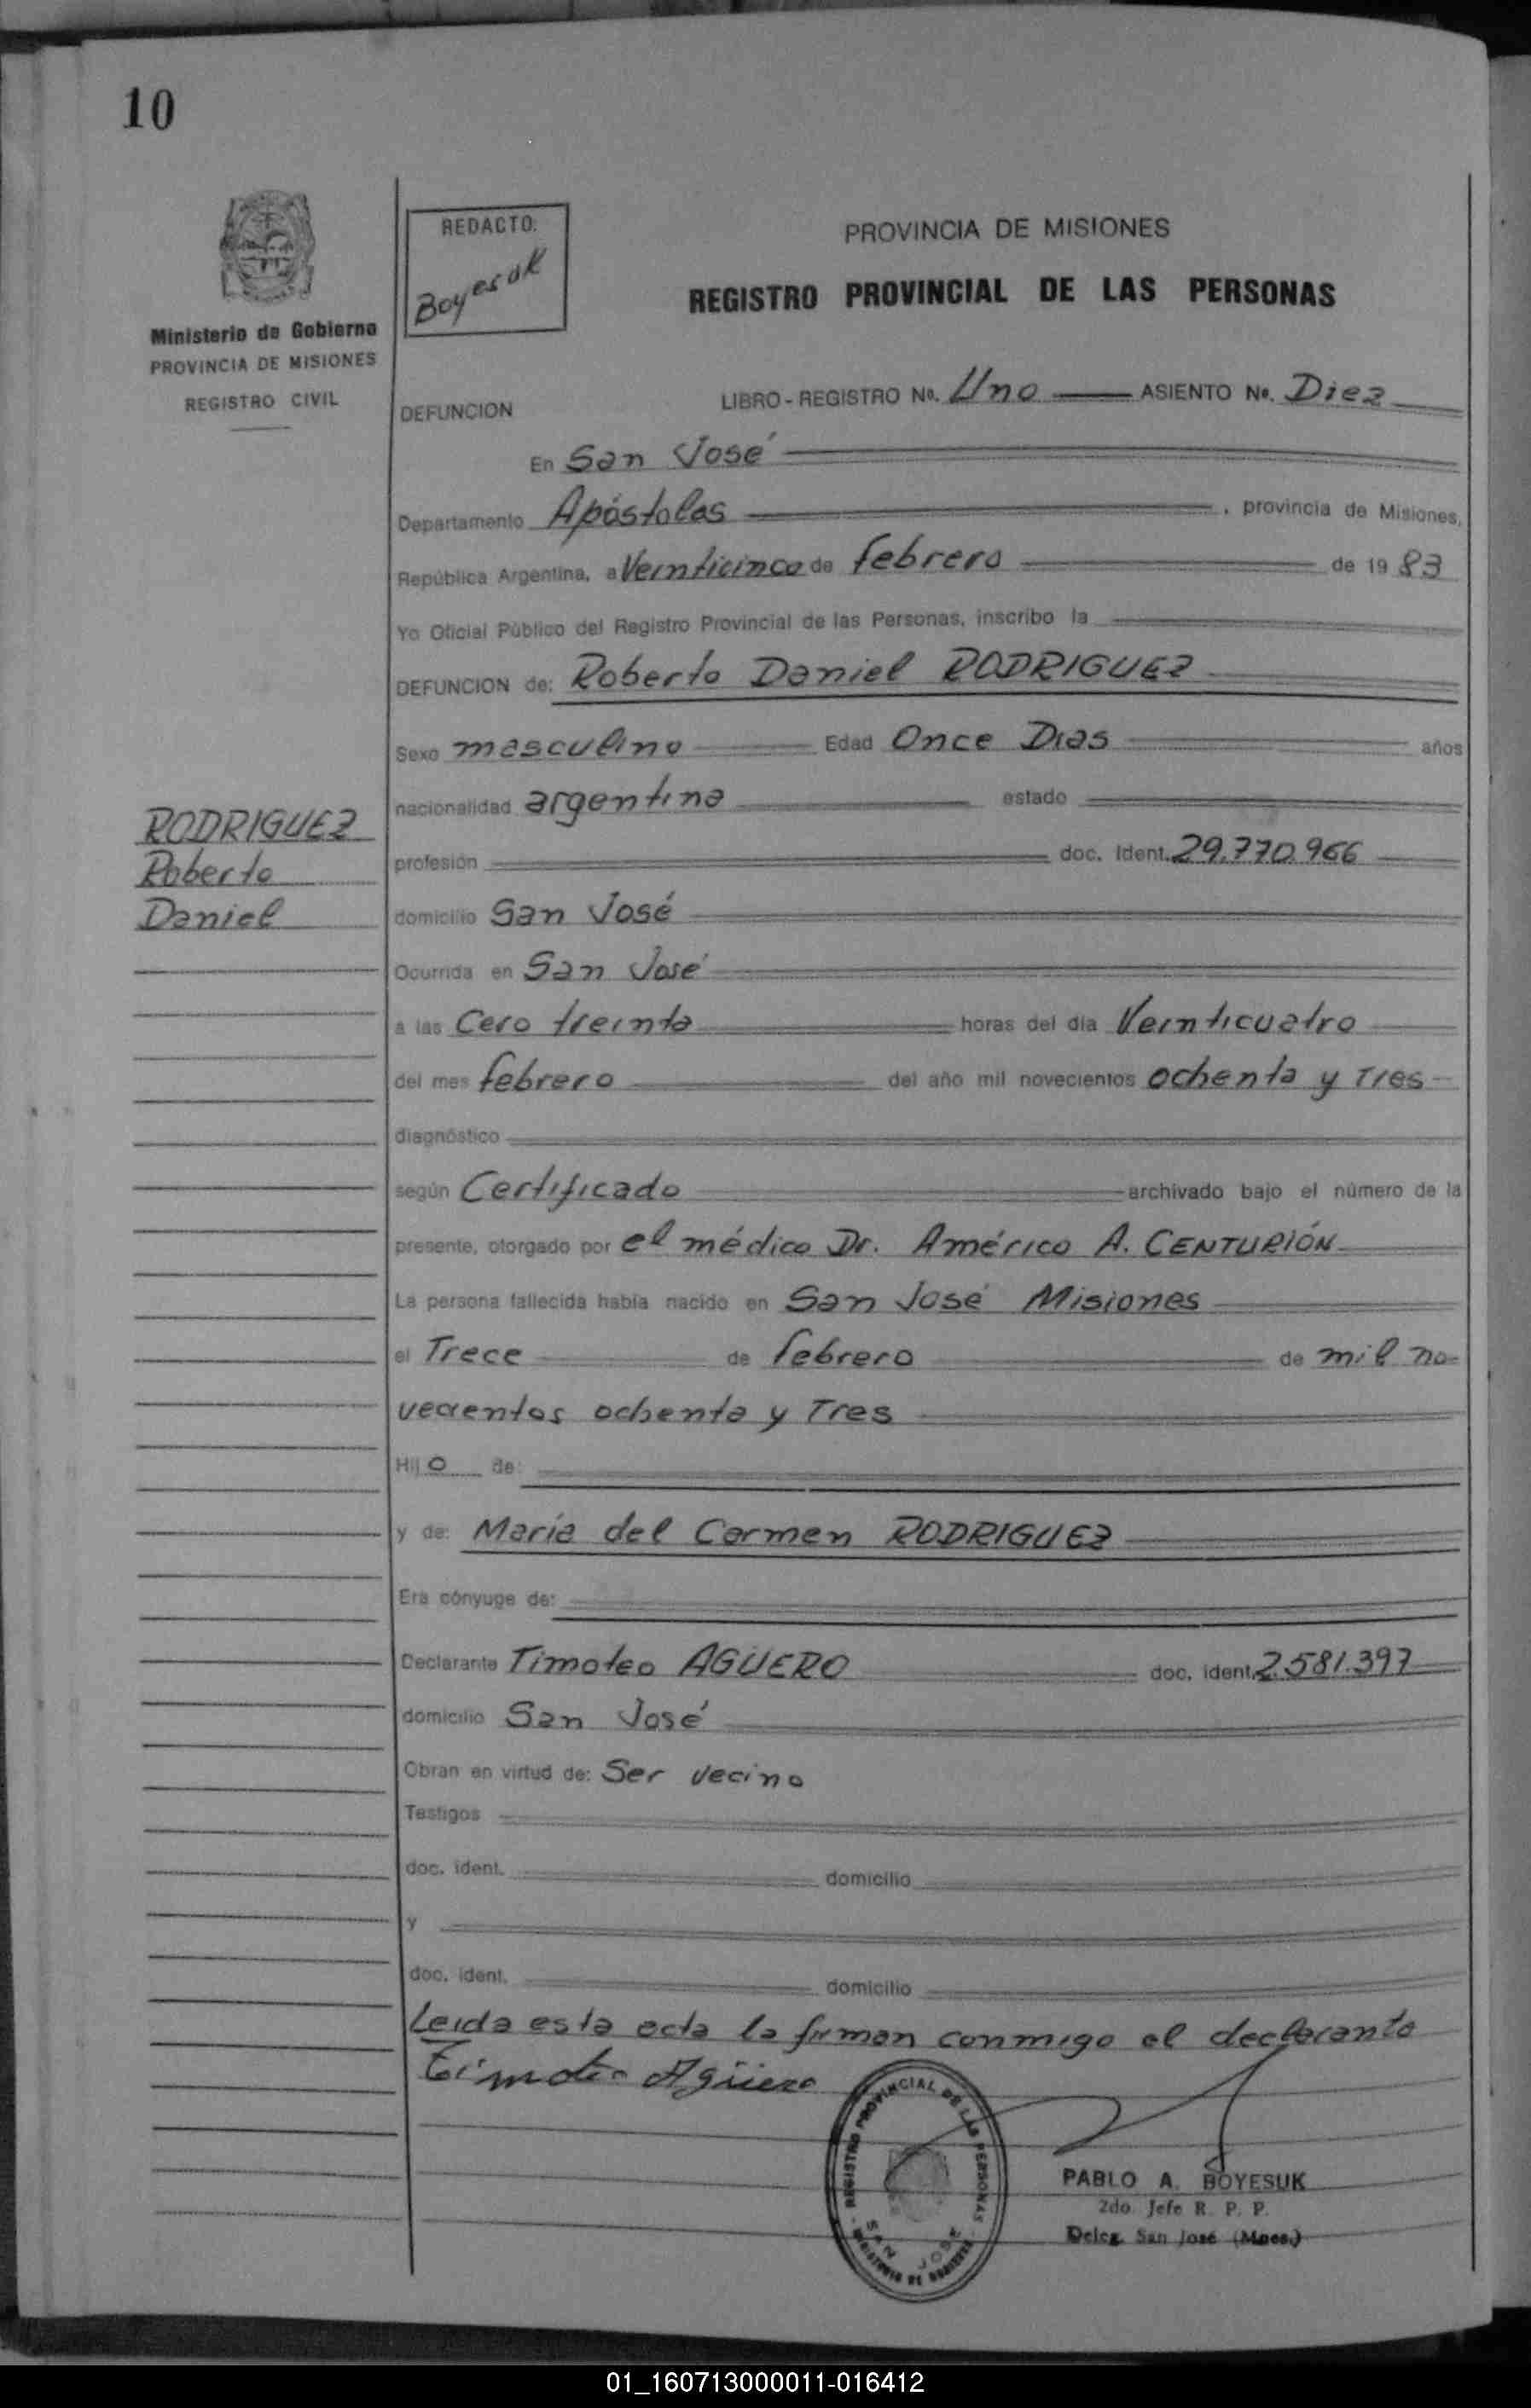 10
Ministerio de Gobierno
PROVINCIA DE MISIONES
REGISTRO CIVIL
REDACTO:
Boyesuk
PROVINCIA DE MISIONES
REGISTRO PROVINCIAL DE LAS PERSONAS
DEFUNCION LIBRO - REGISTRO No. Uno ASIENTO No. Diez
En San José
Departamento Apóstoles, provincia de Misiones,
República Argentina, a Veinticinco de febrero de 19 83
Yo Oficial Público del Registro Provincial de las Personas, inscribo la
DEFUNCION de: Roberto Daniel RODRIGUEZ
Sexo masculino Edad Once Dias años
nacionalidad argentina estado
profesión doc. Ident. 29.770.966
domicilio San José
Ocurrida en San José
a las Cero treinta horas del día Veinticuatro
del mes febrero del año mil novecientos ochenta y Tres
diagnóstico
según Certificado archivado bajo el número de la
presente, otorgado por el médico Dr. Américo A. CENTURIÓN
La persona fallecida había nacido en San José Misiones
el Trece de febrero de mil no-
vecientos ochenta y Tres
Hijo de:
y de: María del Carmen RODRIGUEZ
Era cónyuge de:
Declarante Timoteo AGÜERO doc. ident. 2.581.397
domicilio San José
Obran en virtud de: Ser vecino
Testigos
doc. ident. domicilio
y
doc. ident. domicilio
Leida esta acta la firman conmigo el declarante
Timoteo Agüero
RODRIGUEZ
Roberto
Daniel
REGISTRO PROVINCIAL DE LAS PERSONAS
SAN JOSE
MINISTERIO DE GOBIERNO
PABLO A. BOYESUK
2do. Jefe R. P. P.
Deleg. San José (Mnes.)
01_160713000011-016412